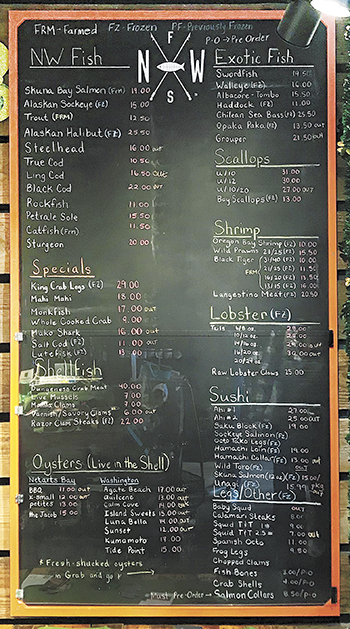 FRM-Farmed FZ-Frozen PF-Previously Frozen
P-O → Pre Order
F
N W
S
NW Fish
Skuna Bay Salmon (Frm) 19.00
Alaskan Sockeye (FZ) 15.00
Trout (FRM) 12.50
Alaskan Halibut (FZ) 25.50
Steelhead 16.00 out
True Cod 10.50
Ling Cod 16.50 out
Black Cod 22.00 out
Rockfish 11.00
Petrale Sole 15.50
Catfish (Frm) 11.50
Sturgeon 20.00
Specials
King Crab Legs (FZ) 29.00
Mahi Mahi 18.00
Monkfish 17.00 out
Whole Cooked Crab 8.00
Mako Shark 16.00 out
Salt Cod (FZ) 11.00 out
Lutefisk (FZ)
Shellfish
Dungeness Crab Meat 40.00
Live Mussels 7.00
Manila Clams 7.00
Varnish/Savory Clams 6.00 out
Razor Clams (FZ) 22.00
Oysters (Live in the Shell)
Netarts Bay
BBQ 11.00 out
x-small 12.00 out
petites 13.00
the Jacob 15.00
Washington
Agate Beach 17.00 out
Quilcene 13.00 out
Calm Cove 14.00
Island Sweets 15.00 out
Luna Bella 14.00 out
Sunset 12.00 out
Kumamoto 18.00
Tide Point 15.00
* Fresh-shucked oysters
in Grab and go *
Exotic Fish
Swordfish 19.50
Walleye (FZ) 16.00
Albacore-Tombo 15.50
Haddock (FZ) 11.00
Chilean Sea Bass (FZ) 25.50
Opaka Paka 13.50 out
Grouper 21.50 out
Scallops
U/10 31.00
U/12 30.00
U/10/20 27.00 out
Bay Scallops (FZ) 13.00
Shrimp
Oregon Bay Shrimp (FZ) 10.00
Wild Prawns 21/25 (FZ) 15.50
Black Tiger 31/40 (FZ) 10.00
FRM 21/25 (FZ) 11.50
16/20 (FZ) 13.50
13/15 (FZ) 16.00
Langostino Meat (FZ) 20.50
Lobster (FZ)
Tails
Raw Lobster Claws 15.00
Sushi
Ahi #1 27.00
Ahi #2 25.00 out
Saku Block (FZ) 19.00
Sockeye Salmon (FZ)
Hamachi Loin (FZ) 19.00
Hamachi Collar (FZ) 13.00 out
Wild Toro (FZ) out
Skuna Salmon (FZ)
Unagi (FZ) 15.99
Legs/Other (FZ)
Baby Squid out
Calamari Steaks 8.00
Squid T+T 9.00
Squid T+T 2.5= 7.00 out
Spanish Octo 11.00
Frog Legs 9.50
Chopped Clams
Fish Bones 3.00/P-O
Crab Shells 4.00/P-O
Must Pre-Order → Salmon Collars 8.50/P-O